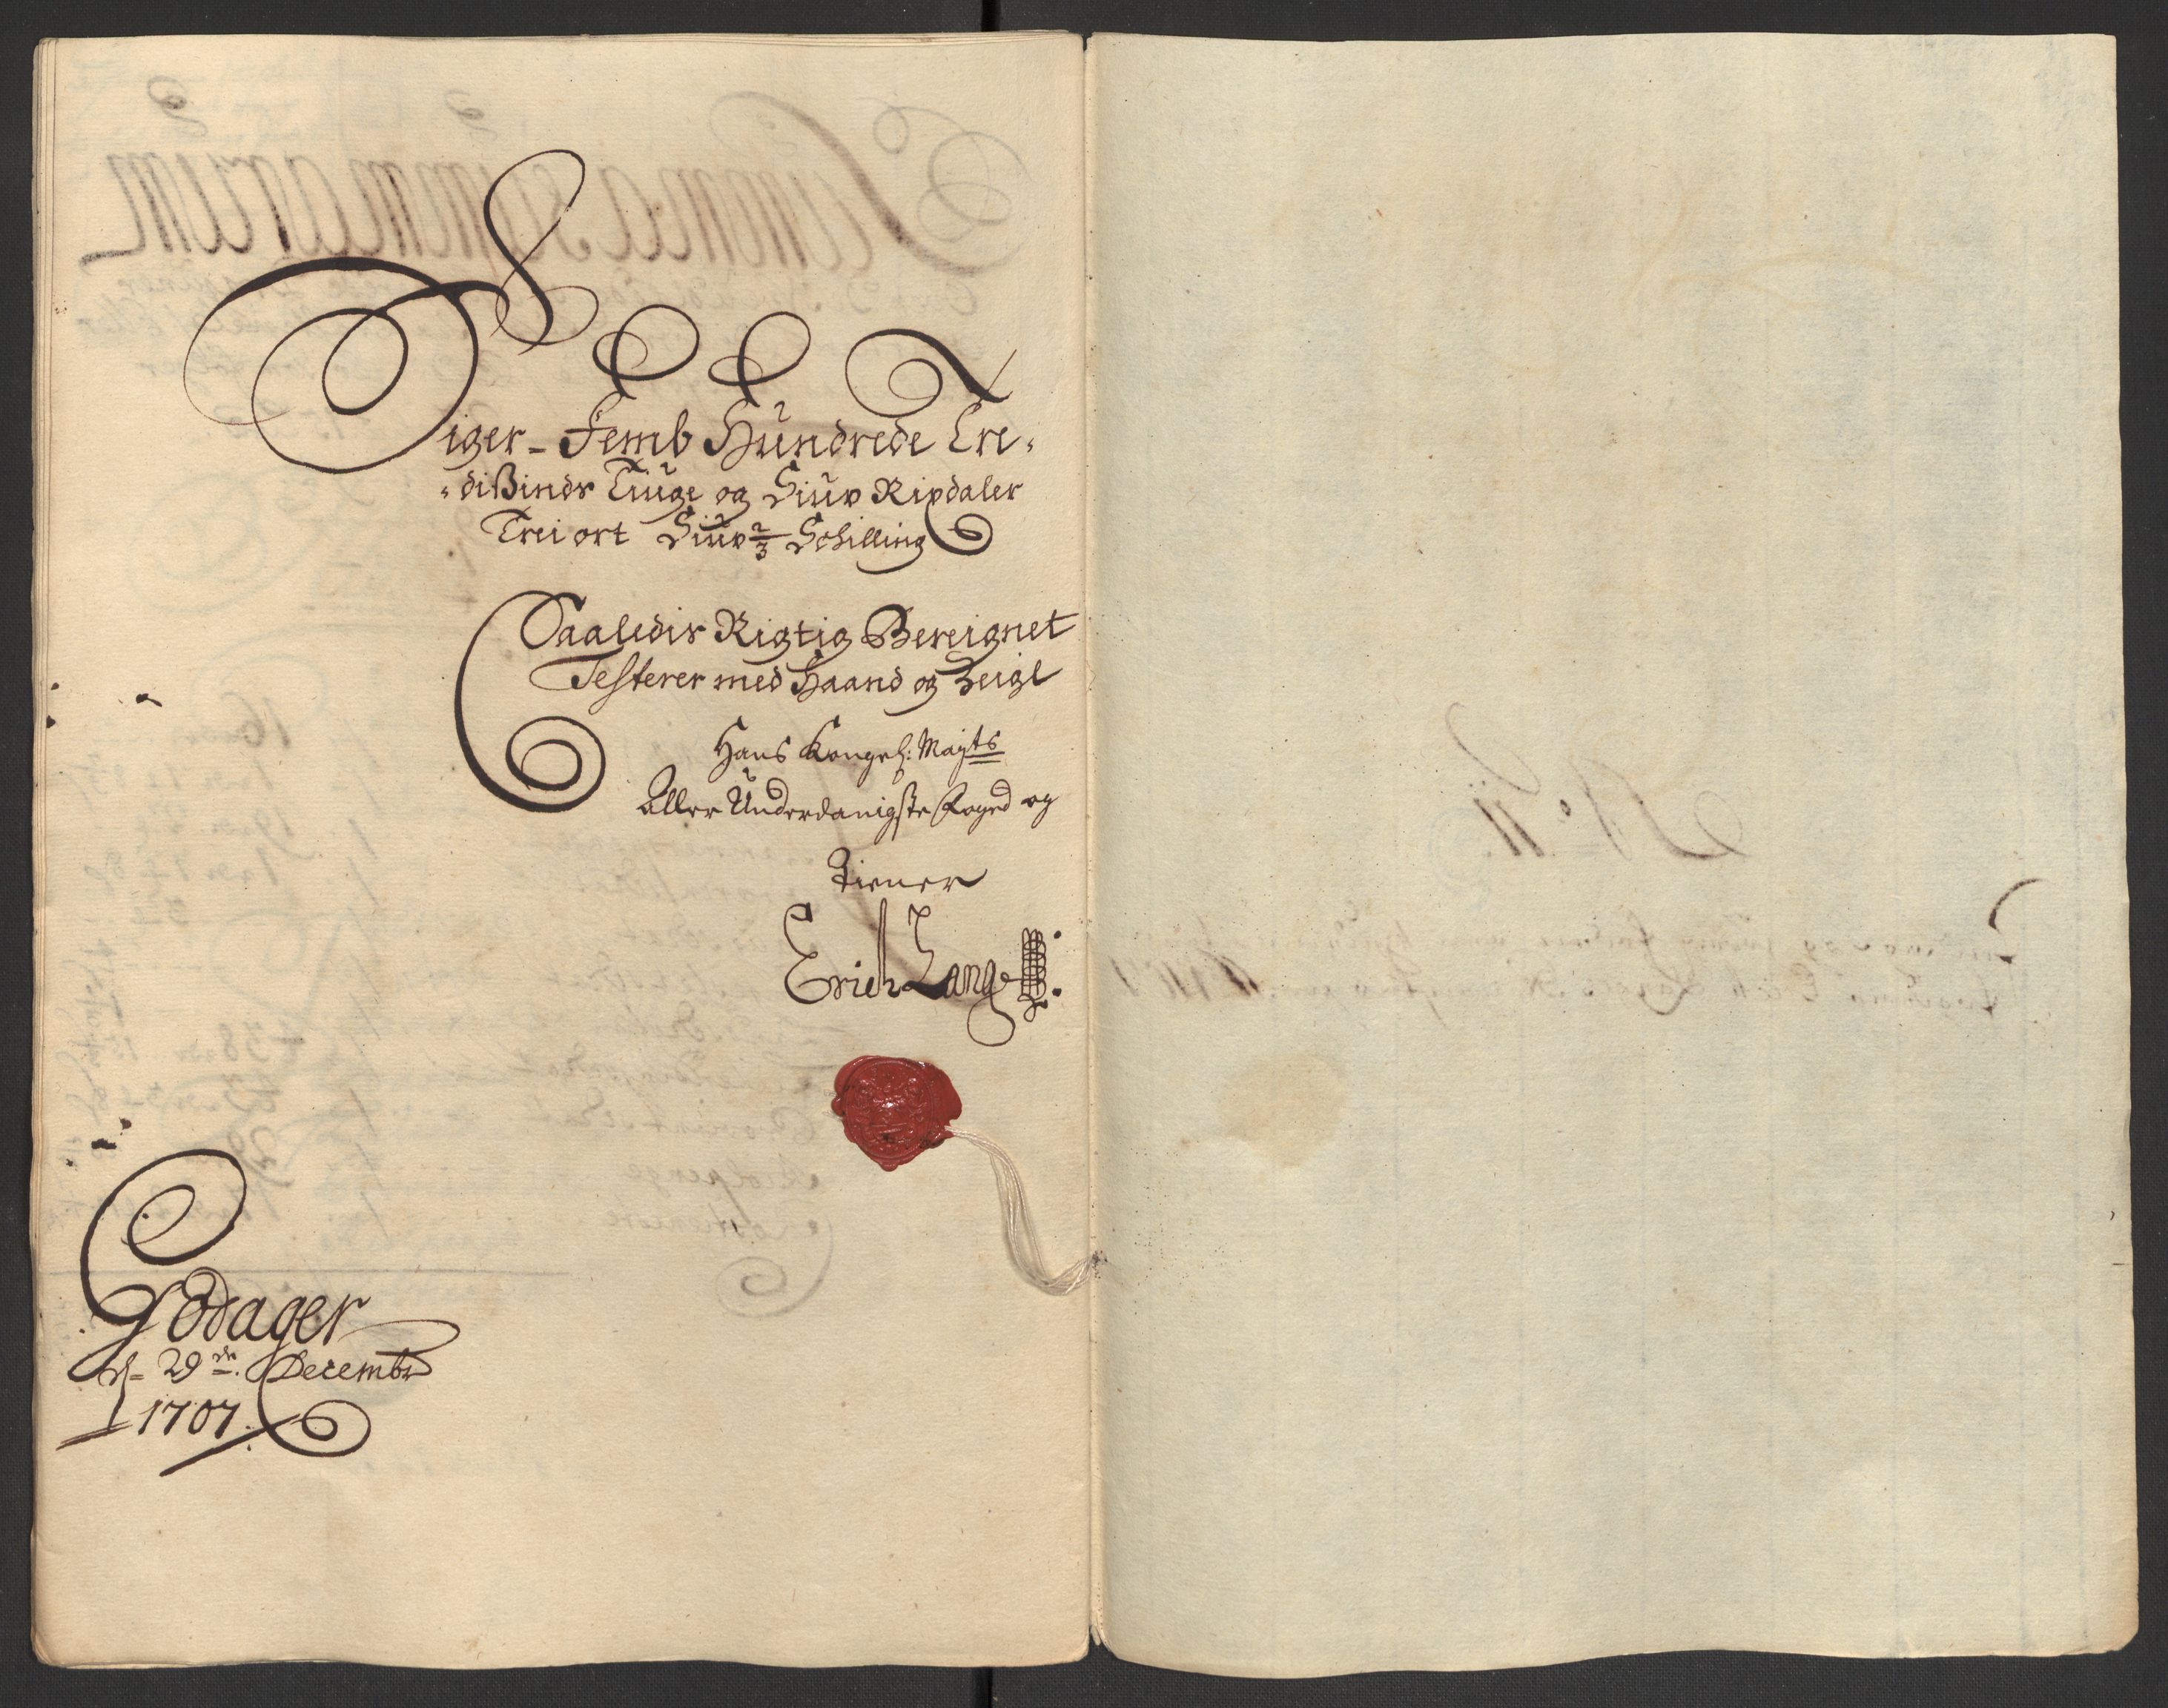 Siger - Femb Hundrede Tre-
-disSinds Tiuge og Siuv Rixdaler
Trei ort Siuv 2/3 Schilling
Saaledis Rigtig Bereignet
Testerer med Haand og Zeigl
Hans Kongel: Mayts
Aller Underdanigste Foged og
Tiener
Erich Lange
Godager
d= 29de. Decembr
1707.